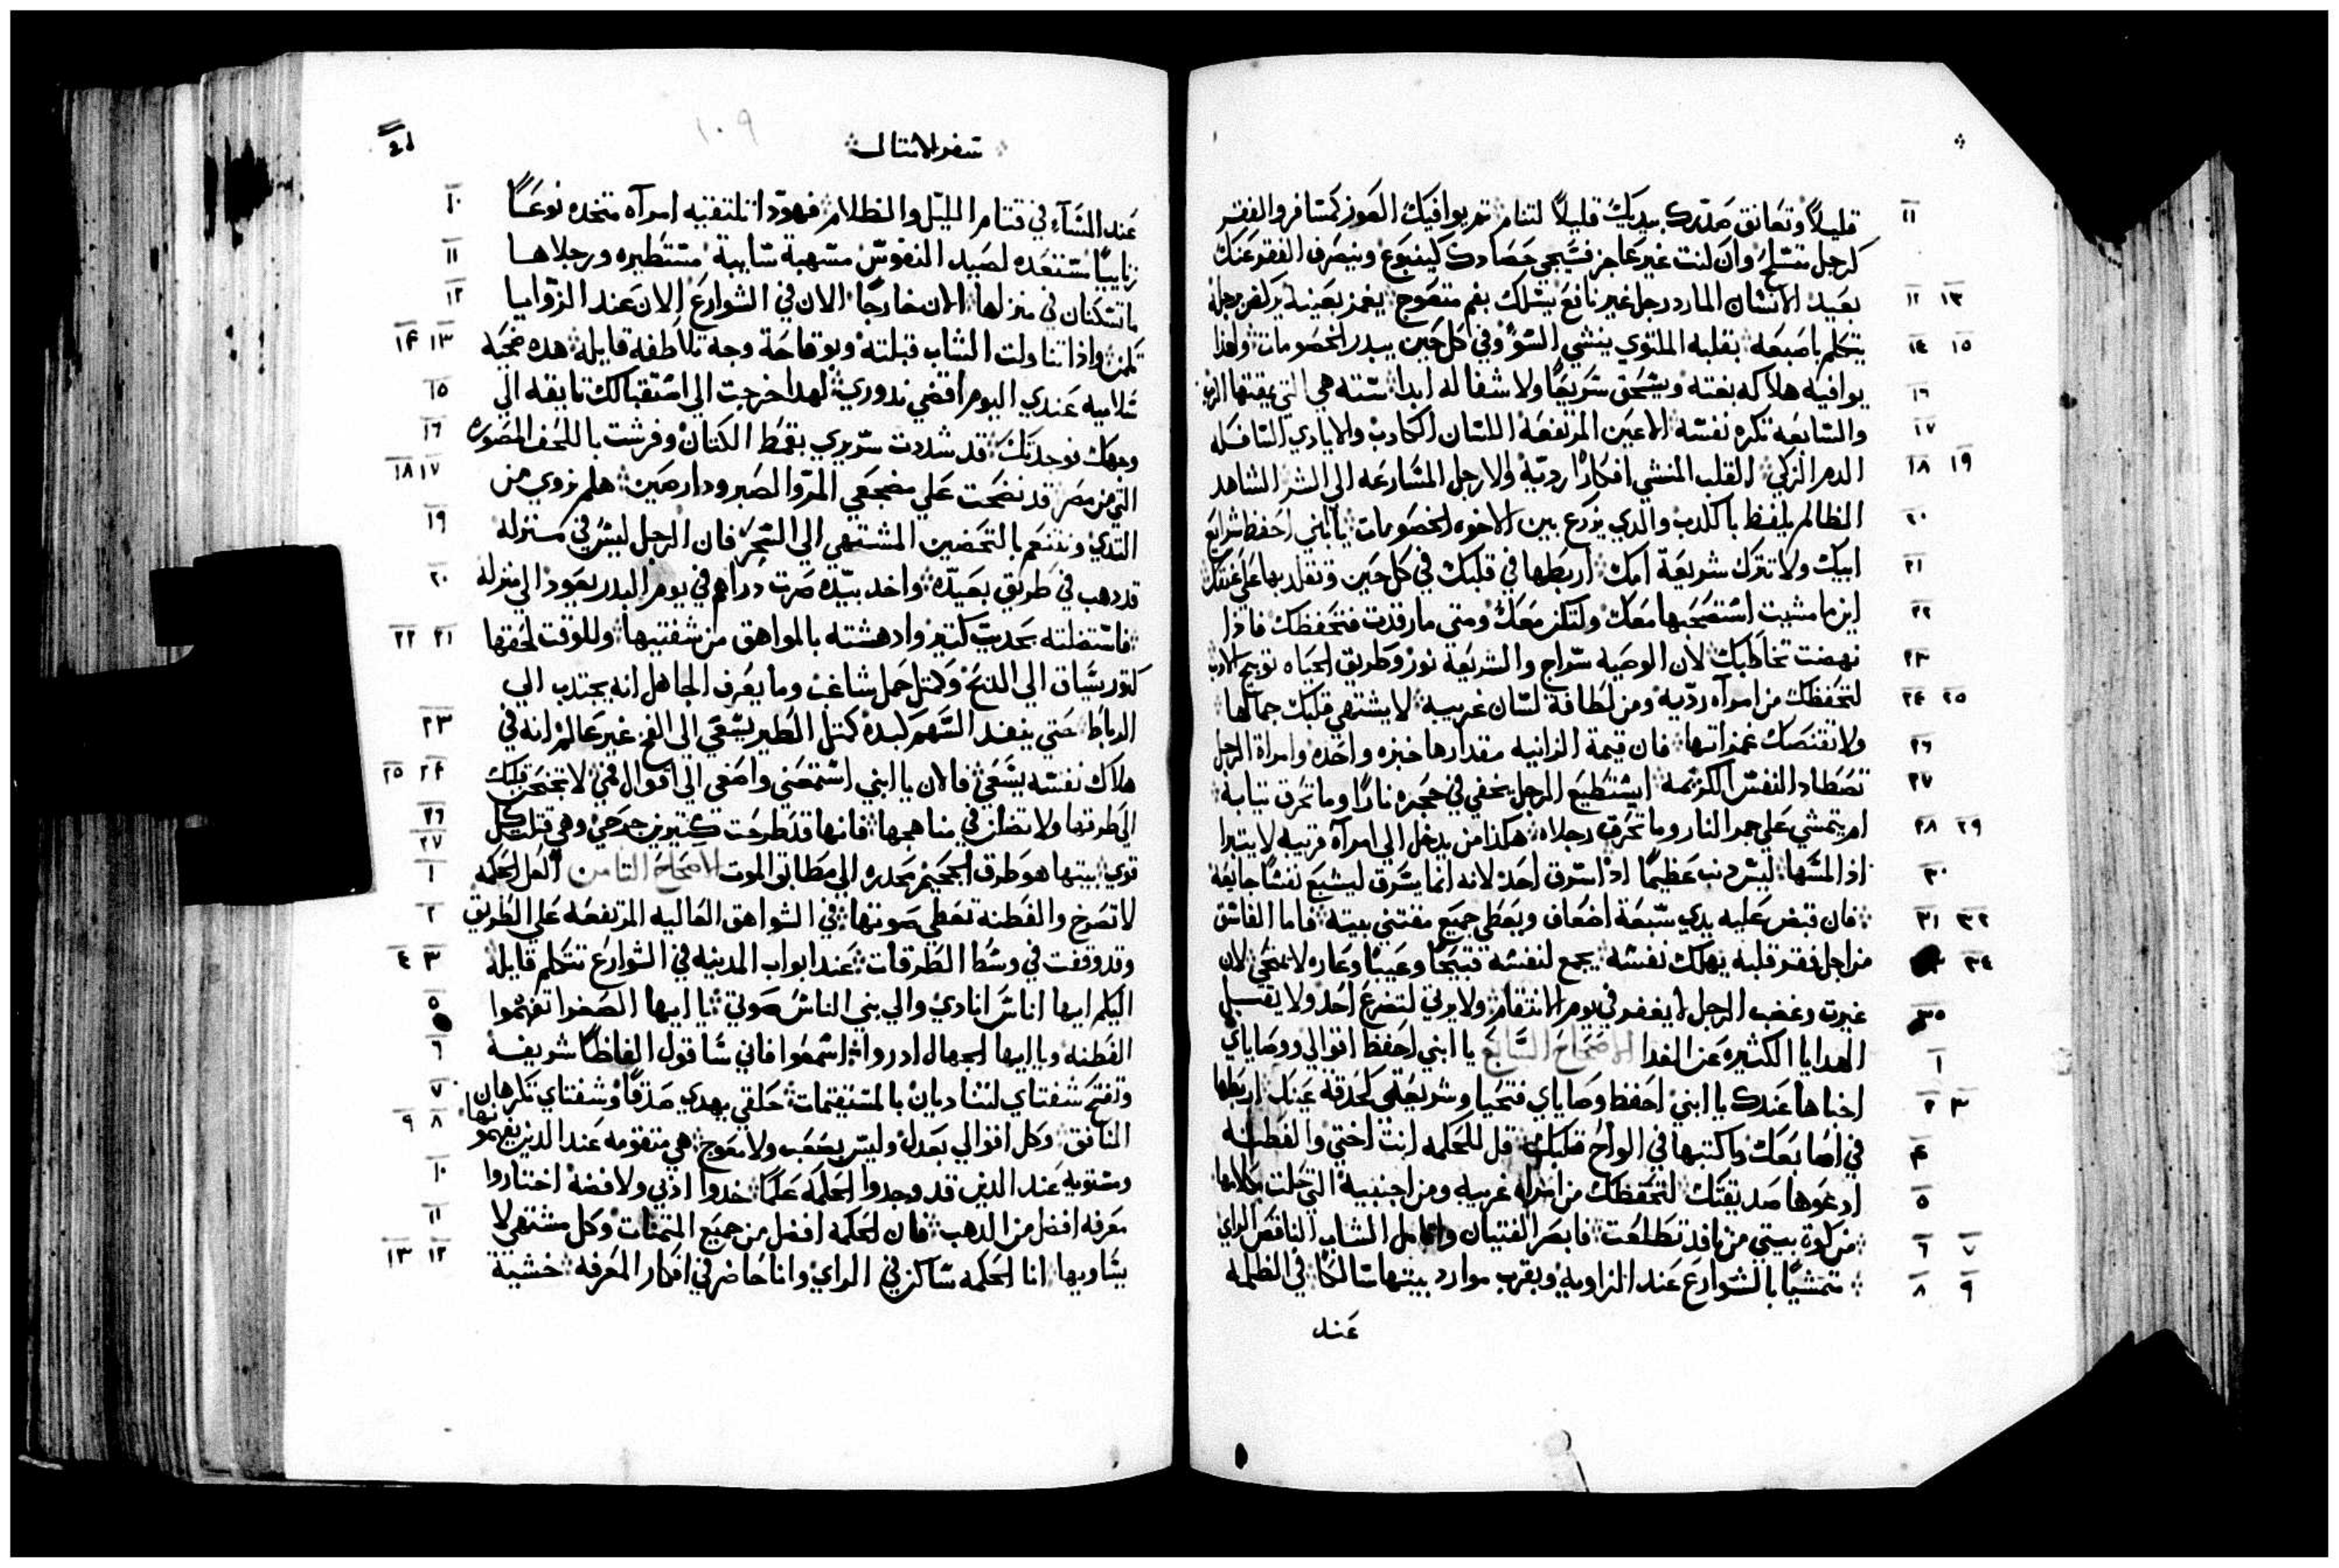 ١١ قليلاً وتعانق صدرك بيديك قليلاً لتنام ثم يوافيك العوز كمسافر والفقر
كرجل متسلح وان كنت غير عاجز فسيجي حصادك كينبوع وينصرف الفقر عنك
١٢ ١٣ بعيد الانسان المارد رجل غير نافع يسلك بفم متعوج يغمز بعينه يركض برجله
١٤ ١٥ يتكلم باصبعه بقلبه الملتوي ينشي السوّ وفي كل حين يبدر الخصومات ولهذا
١٦ يوافيه هلاكه بغته ويسحق سريعًا ولا شفا له ابدا ستته هي التي يمقتها الرب
١٧ والسابعه تكره نفسه الاعين المرتفعه اللسان الكادب والايادي السافكه
١٨ ١٩ الدم الزكي القلب المنشي افكارًا رديّة والارجل المسارعه الي الشر الشاهد
٢٠ الظالم يلفظ بالكدب والدي يزرع بين الاخوه الخصومات يا ابني احفظ شرايع
٢١ ابيك ولا تترك شريعة امك اربطها في قلبك في كل حين وتقلد بها علي عنقك
٢٢ اينما مشيت استصحبها معك ولتكن معك ومتي مارقدت فتحفظك فادا
٢٣ نهضت تخاطبك لان الوصيه سراج والشريعة نور وطريق الحياه توبيخ الادب
٢٤ ٢٥ لتحفظك من امراه رديه ومن لطافة لسان غريبه لا يشتهي قلبك جمالها
٢٦ ولا تقتنصك غمزاتها فان قيمة الزانيه مقدارها خبزه واحده وامراة الرجل
٢٧ تصطاد النفس الكريمه ايستطيع الرجل يخفي في حجره نارًا وما تحرق تيابه
٢٨ ٢٩ ام يتمشي علي جمر النار وما تحرق رجلاه هكذا من يدخل الي امراة قريبه لا يتبرا
٣٠ اذا لمسها ليس دنب عظيمًا ادا سرق احد لانه انما يسرق ليشبع نفسًا جايعه
٣١ ٣٢ فان قبض عليه يدي سبعة اضعاف ويعطي جميع مقتني بيته فاما الفاسق
٣٤ من اجل فقر قلبه يهلك نفسه يجمع لنفسه قبيحًا وعيبًا وعاره لا يمحي لان
٣٥ غيرت وغضب الرجل لا يغفر في يوم الانتقام ولا يرني لتضرع احد ولا يقبل
١ الهدايا الكثيره عن الفدا الاصحاح السابع يا ابني احفظ اقوالي ووصاياي
٢ ٣ اخباها عندك يا ابني احفظ وصاياي فتحيا وشريعتي كحدقة عينك اربطها
٤ في اصابعك واكتبها في الواح قلبك قل للحكمه انت اختي والفطنه
٥ ادعوها صديقتك لتحفظك من امراه غريبه ومن اجنبية التي حلت كلامها
٦ ٧ من كوة بيتي من نافد تطلعت فابصر الفتيان واتامل الشاب الناقص الراي
٨ ٩ متمشيًا بالشوارع عند الزاويه وبقرب موارد بيتها سالكًا في الظلمه
عند
سفر الامتال
١٠٩
١٠ عند المسآء في قتام الليل والظلام فهودا تلتقيه امرآه متخده نوعًا
١١ زانيًا مستعده لصيد النفوس مسهبة سايبة مستطيره ورجلاها
١٢ ما تستكنان في منزلها الان خارجًا الان في الشوارع الان عند الزوايا
١٣ ١٤ تكمن واذا تناولت الشاب قبلته وبوقاحة وجه تلاطفه قايله هده ضحية
١٥ سلاميه عندي اليوم اقضي ندوري لهدا خرجت الي استقبالك تايقه الي
١٦ وجهك فوجدتك قد شددت سريري بقمط الكتان وفرشت باللحف المصوره
١٧ ١٨ التي من مصر قد نضحت علي مضجعي المر والصبر ودارصين هلم نروي من
١٩ التدي ونتنعم بالتحضين المشتهي الي السحر فان الرجل ليس في منزله
٢٠ قد دهب في طريق بعيده واخد بيده صرت دراهم في يوم البدر يعود الي منزله
٢١ ٢٢ فاستضلته بحديت كتير وادهشته بالمواهق من شفتيها وللوقت لحقها
كتور يساق الي الدبح وكمتل حمل شاغب وما يعرف الجاهل انه يجتدب الي
٢٣ الرباط حتي ينفد السهم كبده كمتل الطير يسعي الي الفخ غير عالم انه في
٢٤ ٢٥ هلاك نفسه يسعي فالان يا ابني استمعني واصغي الي اقوال فمي لا تجنحن قلبك
٢٦ الي طرقها ولا تضلن في مناهجها فانها قد طرحت كتيرين جرحي وهي قتلت كل
٢٧ ١ قوي بيتها هو طرق الجحيم محدره الي مطابق الموت الاصحاح التامن العل الحكمه
٢ لا تصرخ والفطنه تعطي صوتها في الشواهق العاليه المرتفعه علي الطريق
٣ ٤ وقد وقفت في وسط الطرقات عند ابواب المدينه في الشوارع تتكلم قايله
٥ اليكم ايها اناس انادي والي بني الناس صوتي يا ايها الصغرا تفهموا
٦ الفطنه ويا ايها الجهال ادروا اسمعوا فاني ساقول الفاظًا شريفه
٧ وتفتح شفتاي لتناديان بالمستقيمات حلقي يهدي صدقًا وشفتاي تكرهان
٨ ٩ النافق وكل اقوالي بعدل وليس بصعب ولا معوج هي متقومه عند الدين يفهمونها
١٠ ومستويه عند الدين قد وجدوا الحكمه علمًا خدوا ادبي ولا فضه اختاروا
١١ معرفه افضل من الدهب فان الحكمه افضل من جميع المتمنات وكل مشتهي لا
١٢ ١٣ يساويها انا الحكمه ساكن في الراي وانا حاضر في افكار المعرفه خشية